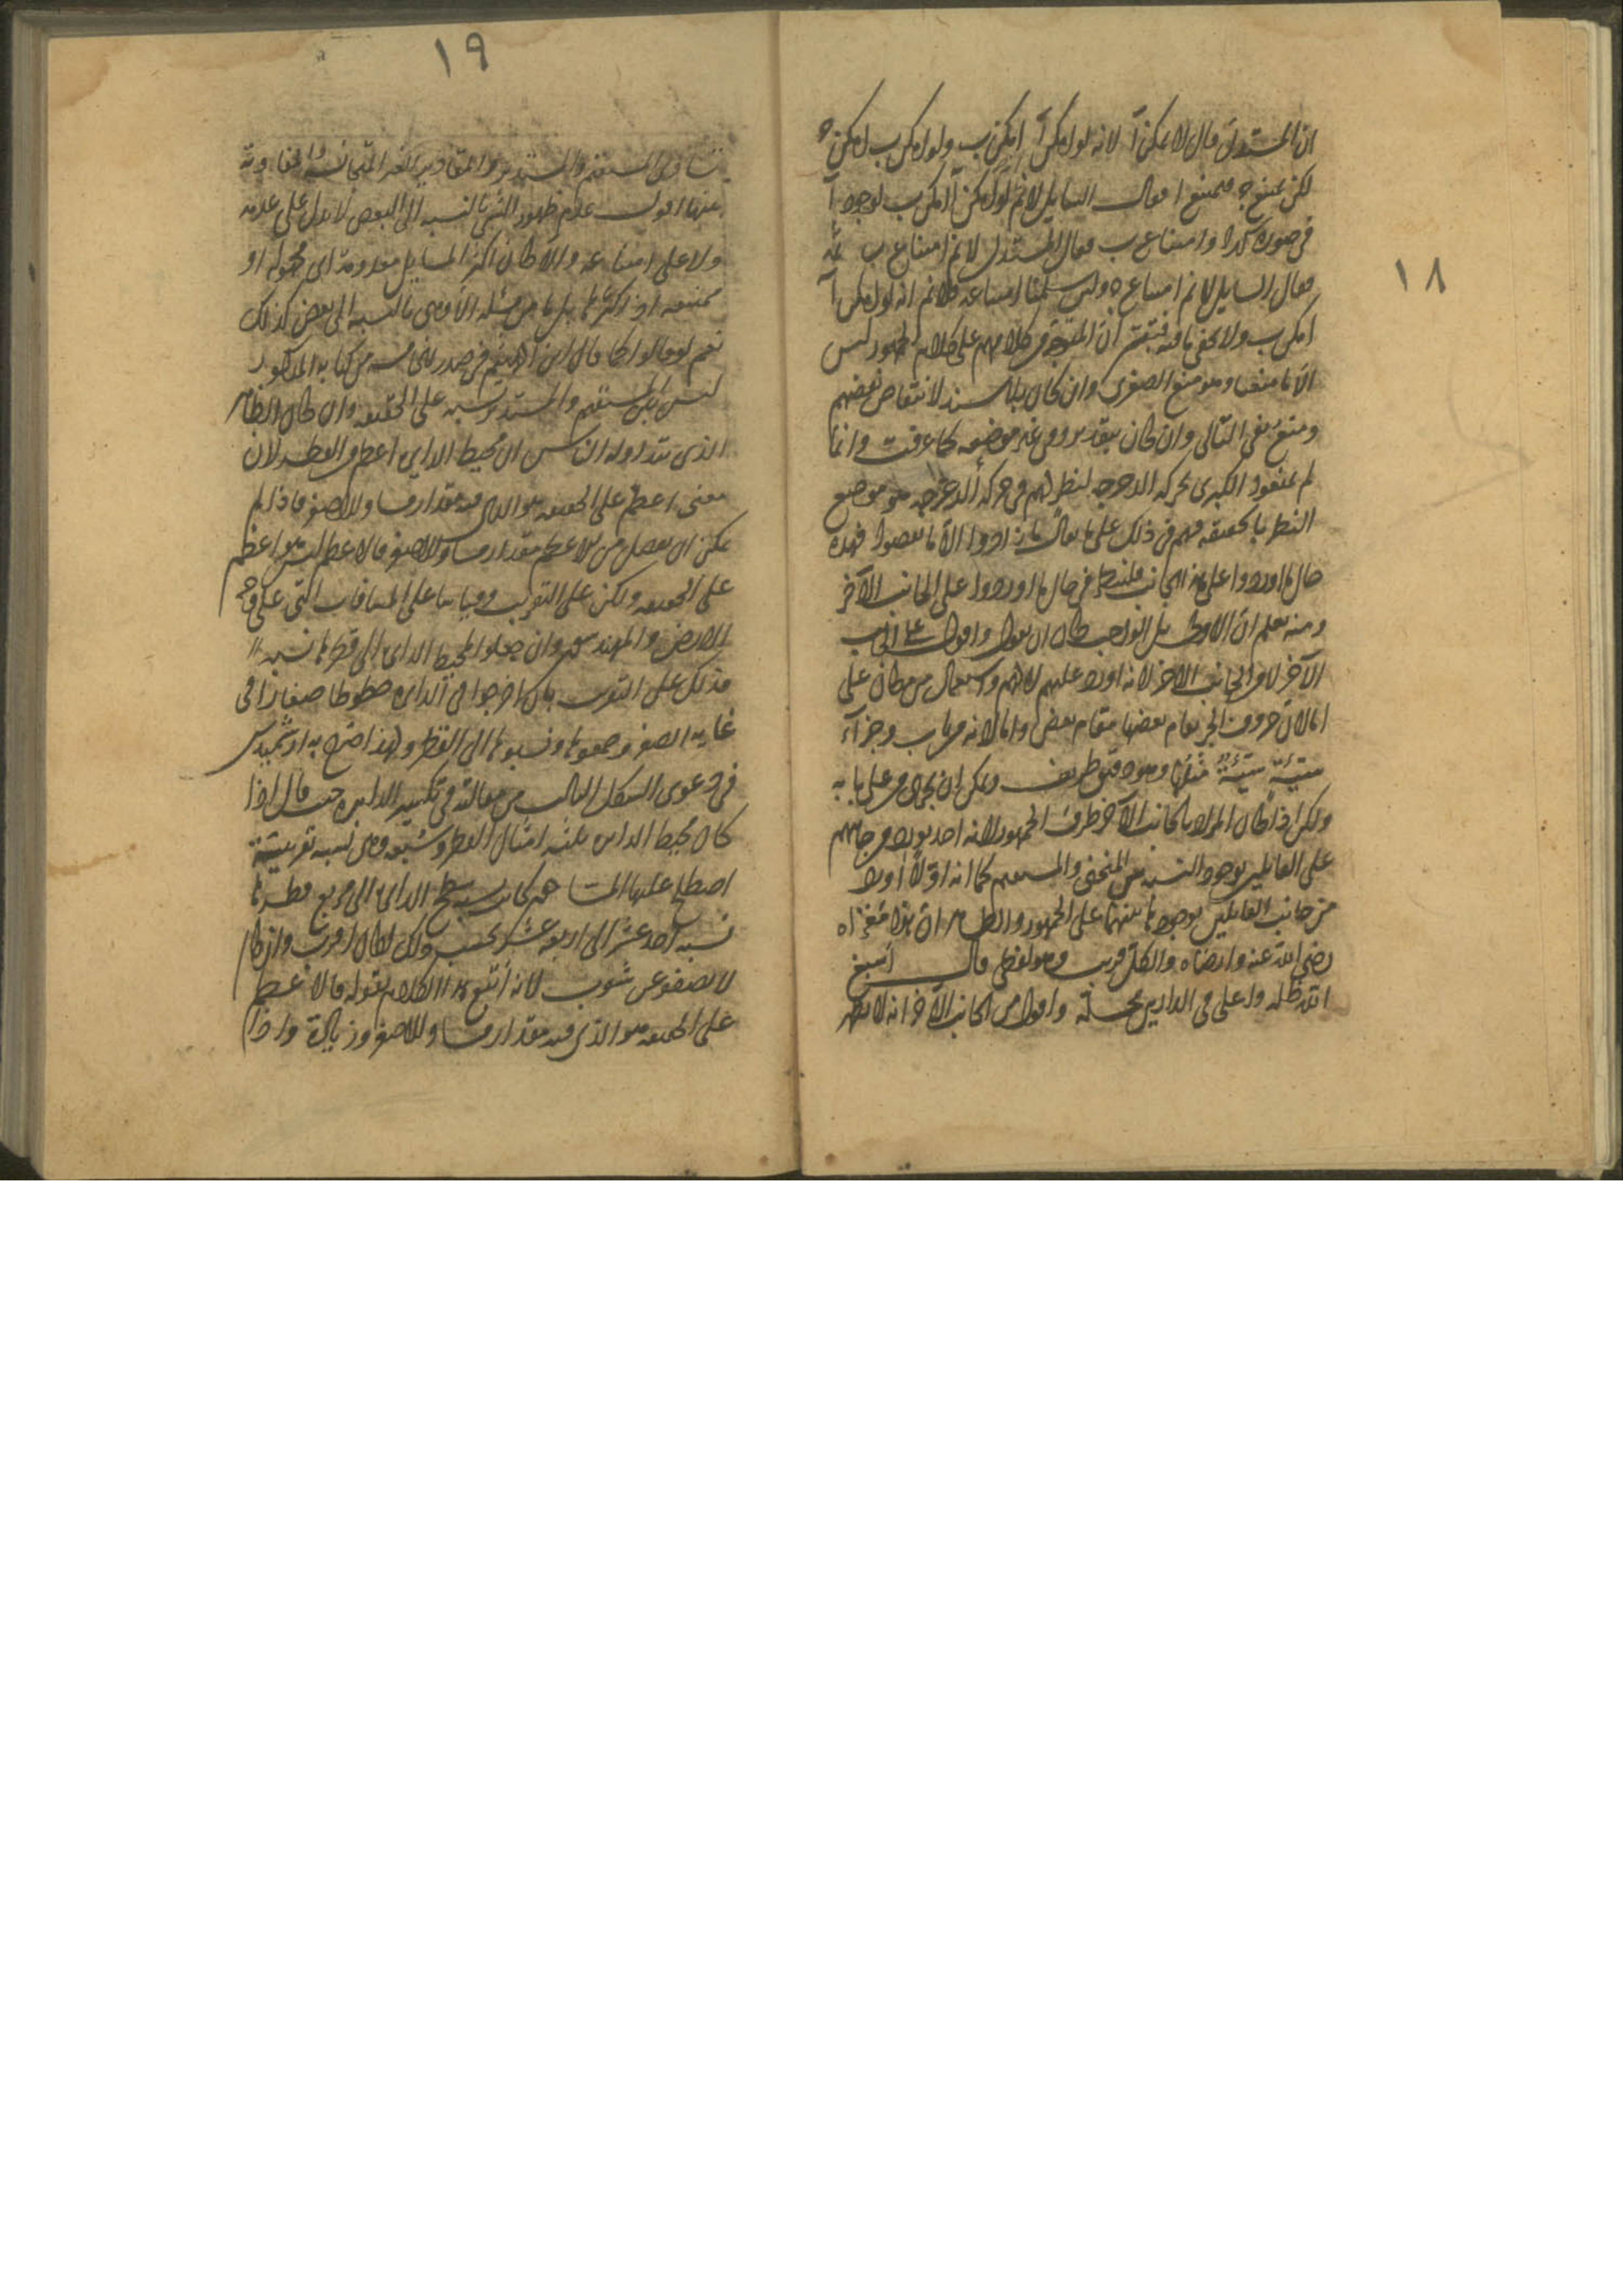 ١٨
ان المستدل قال لا يمكن آ لانه لو امكن آ امكن ب ولو امكن ب لامكن ج
لكن يمتنع ج فيمتنع ا فقال السايل لا نم لو امكن آ امكن ب لوجود آ
في صورة كذا وامتناع ب فقال المستدل لا نم امتناع ب ثمه
فقال السايل لا نم امتناع ه ولئن سلمنا امتناعه فلا نم انه لو امكن آ
امكن ب ولا يخفى ما فيه فتبين ان المتوجه في كلامهم على كلام الجمهور ليس
الا ما منعنا وهو منع الصغرى وان كان بلا سند لانتقاض نقضهم
ومنع نفي التالي وان كان بتقديره في غير موضعه كما عرفت وانما
لم يمنعوا الكبرى بحركة الدحرجة لنظرهم في حركة الدحرجة هو موضع
النظر بالحقيقة فهم في ذلك على ما يقال ما زادوا الا ما نقصوا فهذه
حال ما اوردوا على هذا الجانب فلننظر في حال ما اوردوا على الجانب الآخر
ومنه يعلم ان الاولى بل الواجب كان ان يقول واقول على الجانب
الآخر لا من الجانب الآخر لانه اورد عليهم لا لهم واستعمال من مكان على
اما لان حروف الجر يقام بعضها مقام بعض واما لانه من باب وجزآء
سيئة سيئة مثلها وهو دقيق ظريف ويمكن ان يجرى من على بابه
ولكن اذا كان المراد بالجانب الآخر طرف الجمهور لانه احد يورد من جانبهم
على القايلين بوجود النسبة بين المنحنى والمستقيم كما انه اولا اورد
من جانب القايلين بوجود ما بينهما على الجمهور والظاهر ان هذا مغزاه
رضي الله عنه وارضاه والكل قريب وهو لفظي قال أسبغ
الله ظله واعلى في الدارين محله واقول من الجانب الآخر انه لا يظهر
١٩
تساوى المستقيم والمستدير والمقادير الغير المتجانسة والتفاوت
بينها اقول عدم ظهور الشي بالنسبة الى البعض لا يدل على عدمه
ولا على امتناعه والا كان اكثر المسايل معدومة اي مجهولة او
ممتنعة اذ اكثرها بل ما من مسئلة الا وهي بالنسبة الى بعض كذلك
نعم لو قالوا كما قال ابن الهيثم في صدر الخامسة من كتابه المذكور
ليس بين المستقيم والمستدير نسبة على الحقيقة وان كان الظاهر
الذي تتداوله الناس ان محيط الدايرة اعظم من القطر لان
معنى اعظم على الحقيقة هو الذي فيه مقدار مساو للاصغر فاذا لم
يمكن ان يفصل من الاعظم مقدار مساو للاصغر فالاعظم ليس هو اعظم
على الحقيقة ولكن على التقريب وقياسا على المسافات التي على وجه
الارض والمهندسون وان جعلوا لمحيط الدايرة الى قطرها نسبة
فذلك على التقريب بان اخرجوا في الدايرة خطوطا صغارا في
غاية الصغر وجمعوها ونسبوها الى القطر ولهذا صرح به ارشميدس
في دعوى الشكل الثالث من مقالته في تكسير الدايرة حيث قال اذا
كان محيط الدايرة ثلثة امثال القطر وسبعه وهي نسبة تقريبية
اصطلح عليها المساحة كانت نسبة سطح الدايرة الى مربع قطرها
نسبة احد عشر الى اربعة عشر بحسب ذلك لكان اقرب وان كان
لا يصفو عن شوب لانه أتبع هذا الكلام بقوله فالاعظم
على الحقيقة هو الذي فيه مقدار مساو للاصغر وزيادة واذا